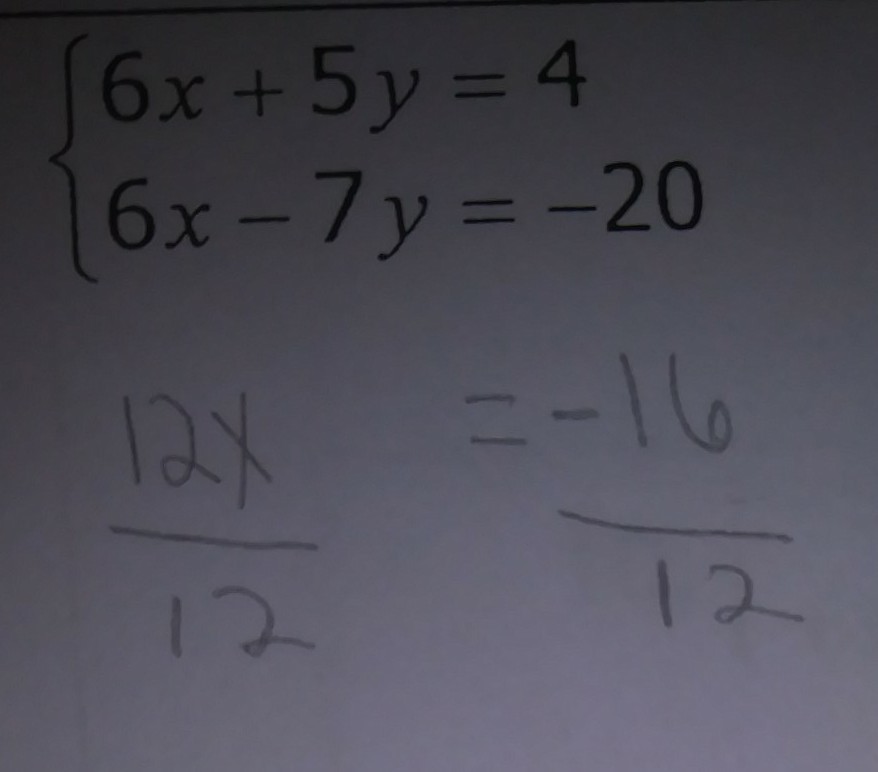 6x + 5y = 4
6x − 7y = −20
12x = -16
12 12